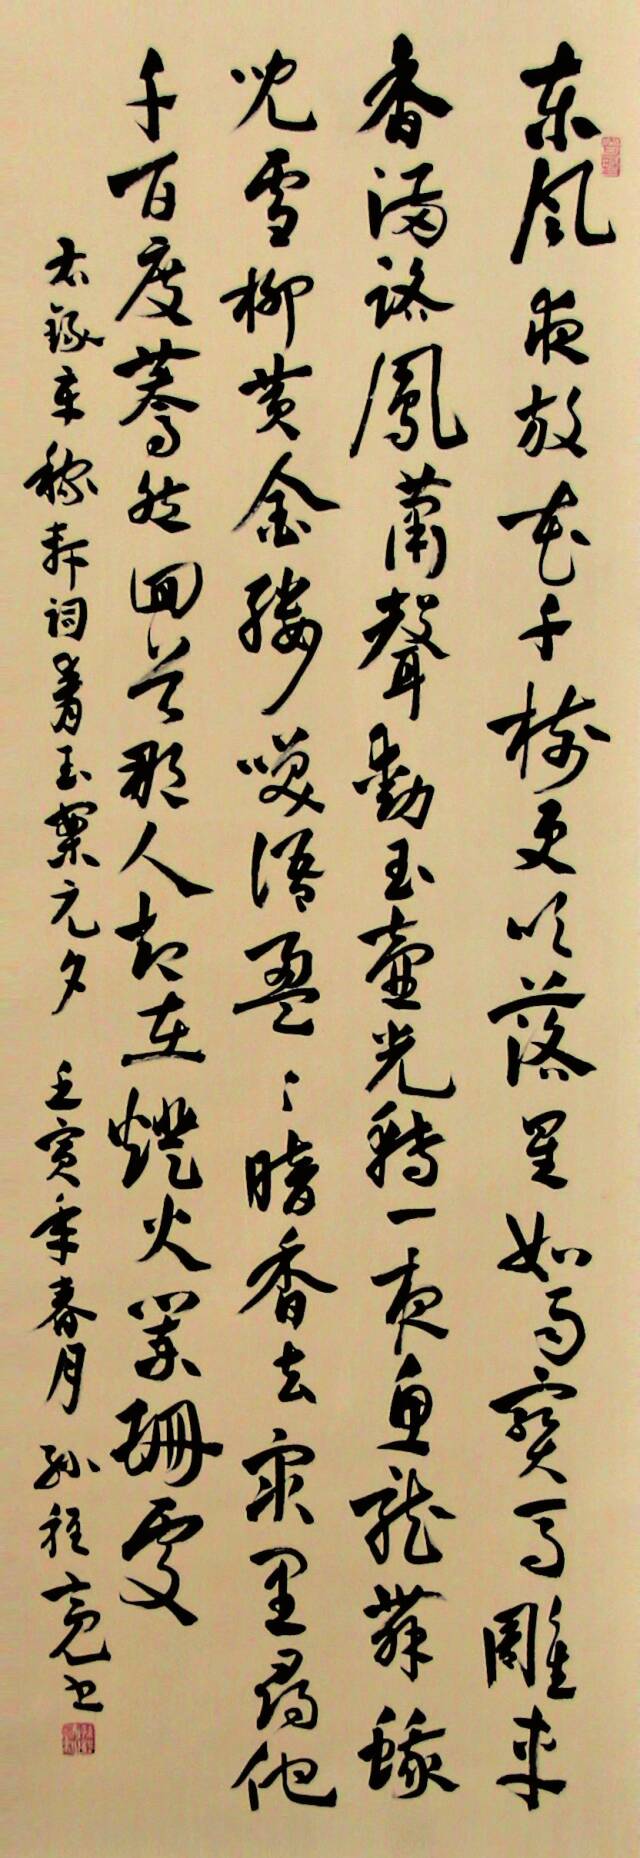 东风夜放花千树更吹落星如雨宝马雕车
香满路凤萧声动玉壶光转一夜鱼龙舞蛾
儿雪柳黄金缕笑语盈々暗香去众里寻他
千百度蓦然回首那人却在灯火阑珊处
右录辛稼轩词青玉案元夕 壬寅年春月 孙程亮书